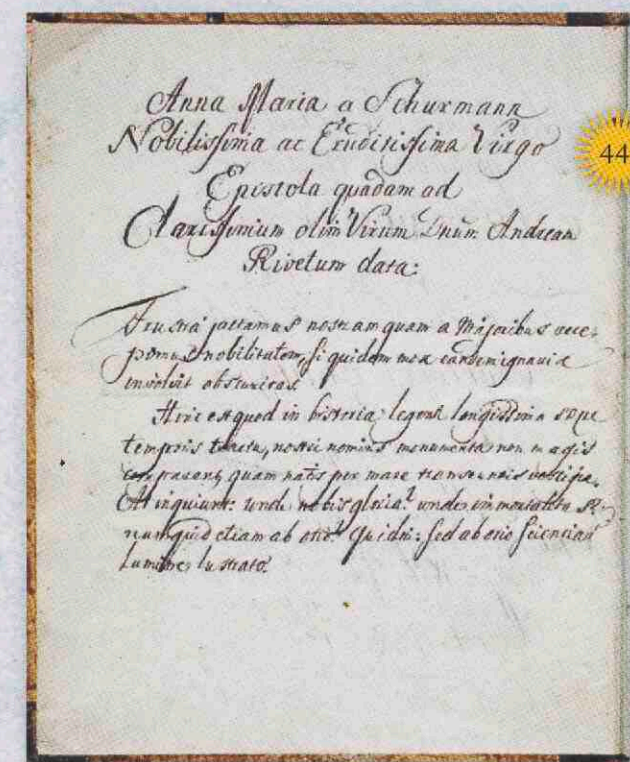 Anna Maria a Schurmann
Nobilissima ac Eruditissima Virgo
Epistola quadam ad
Clarissimum olim Virum Dnum Andream
Rivetum data:
44
Frustra jactamus nostram quam a Majoribus acce-
pimus nobilitatem, si quidem mox eandem ignavia
involvit obscuritas
Hinc est quod in historia legenti longissimo saepe
temporis tractu, nostri nominis monumenta non magis
compareant, quam navis per mare transeuntis vestigia.
At inquiunt: unde nobis gloria? unde immortalitas?
numquid etiam ab otio? Quidni: sed ab otio scientiarum
lumine lustrato.